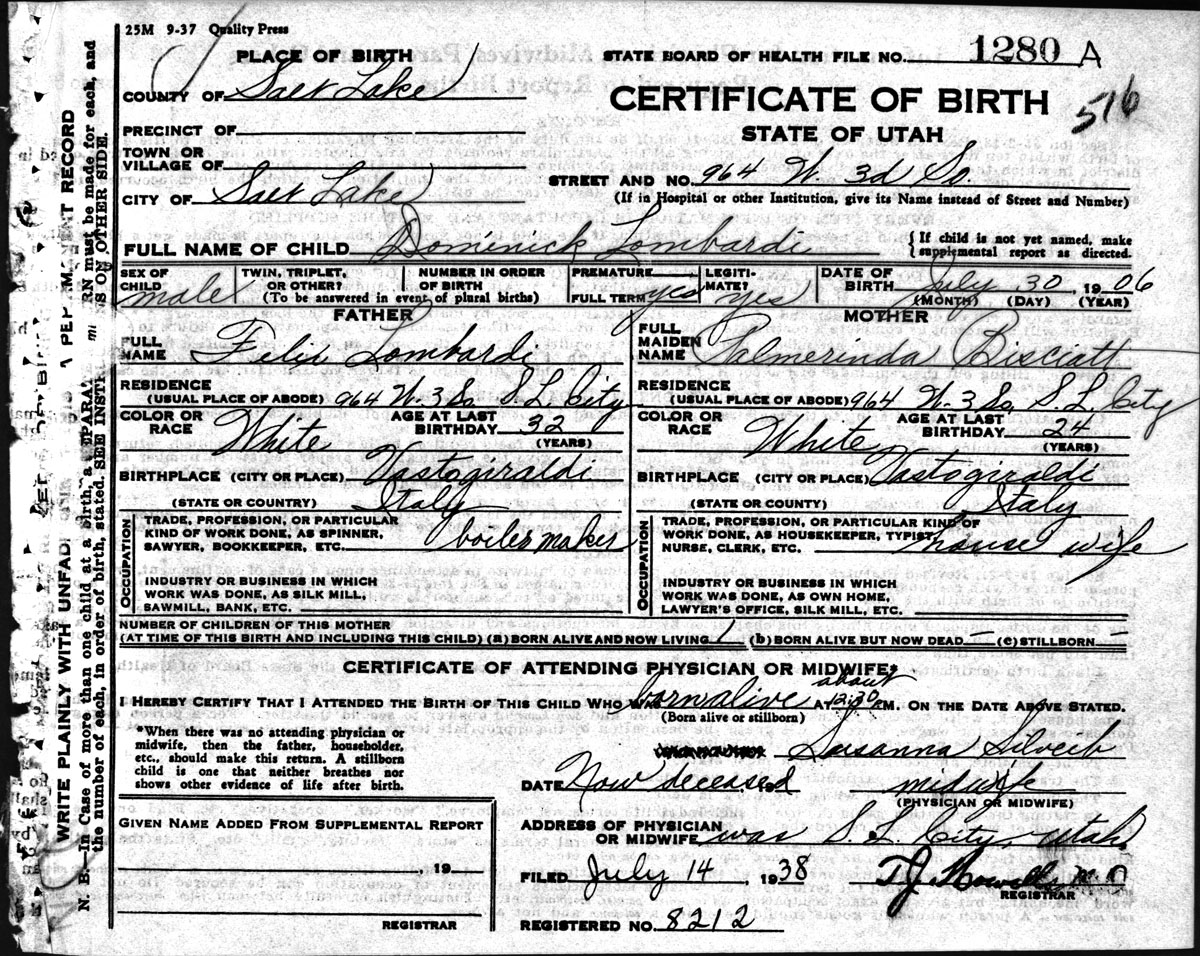 25M 9-37 Quality Press
PLACE OF BIRTH
STATE BOARD OF HEALTH FILE NO. 1280 A
COUNTY OF Salt Lake
CERTIFICATE OF BIRTH 516
PRECINCT OF
STATE OF UTAH
TOWN OR
VILLAGE OF
STREET AND NO. 964 W. 3d So.
CITY OF Salt Lake
(If in Hospital or other Institution, give its Name instead of Street and Number)
FULL NAME OF CHILD Domenick Lombardi
{ If child is not yet named, make
supplemental report as directed.
SEX OF
CHILD male
TWIN, TRIPLET,
OR OTHER?
NUMBER IN ORDER
OF BIRTH
(To be answered in event of plural births)
PREMATURE
FULL TERM yes
LEGITI-
MATE? yes
DATE OF
BIRTH July 30, 1906
(MONTH) (DAY) (YEAR)
FATHER
FULL
NAME Felix Lombardi
RESIDENCE
(USUAL PLACE OF ABODE) 964 W-3 So. S.L. City
COLOR OR
RACE White
AGE AT LAST
BIRTHDAY 32
(YEARS)
BIRTHPLACE (CITY OR PLACE) Vastogiraldi
(STATE OR COUNTRY) Italy
OCCUPATION
TRADE, PROFESSION, OR PARTICULAR
KIND OF WORK DONE, AS SPINNER,
SAWYER, BOOKKEEPER, ETC. boiler maker
INDUSTRY OR BUSINESS IN WHICH
WORK WAS DONE, AS SILK MILL,
SAWMILL, BANK, ETC.
MOTHER
FULL
MAIDEN
NAME Palmerinda
RESIDENCE
(USUAL PLACE OF ABODE) 964 W-3 So. S.L. City
COLOR OR
RACE White
AGE AT LAST
BIRTHDAY 24
(YEARS)
BIRTHPLACE (CITY OR PLACE) Vastogiraldi
(STATE OR COUNTRY) Italy
OCCUPATION
TRADE, PROFESSION, OR PARTICULAR KIND OF
WORK DONE, AS HOUSEKEEPER, TYPIST,
NURSE, CLERK, ETC. house wife
INDUSTRY OR BUSINESS IN WHICH
WORK WAS DONE, AS OWN HOME,
LAWYER'S OFFICE, SILK MILL, ETC.
NUMBER OF CHILDREN OF THIS MOTHER
(AT TIME OF THIS BIRTH AND INCLUDING THIS CHILD) (a) BORN ALIVE AND NOW LIVING 1 (b) BORN ALIVE BUT NOW DEAD – (c) STILLBORN –
CERTIFICATE OF ATTENDING PHYSICIAN OR MIDWIFE*
about
I HEREBY CERTIFY THAT I ATTENDED THE BIRTH OF THIS CHILD WHO WAS born alive AT 12:30 PM. ON THE DATE ABOVE STATED.
(Born alive or stillborn)
*When there was no attending physician or
midwife, then the father, householder,
etc., should make this return. A stillborn
child is one that neither breathes nor
shows other evidence of life after birth.
Susanna
DATE Now deceased midwife
(PHYSICIAN OR MIDWIFE)
GIVEN NAME ADDED FROM SUPPLEMENTAL REPORT
, 19
REGISTRAR
ADDRESS OF PHYSICIAN
OR MIDWIFE was S.L. City, Utah.
FILED July 14, 1938 T.J. Howells M.D
REGISTRAR
REGISTERED NO. 8212
WRITE PLAINLY WITH UNFADI
A PERMANENT RECORD
N. B.—In Case of more than one child at a birth, a SEPARA
RN must be made for each, and
the number of each, in order of birth, stated. SEE INST
S ON OTHER SIDE.